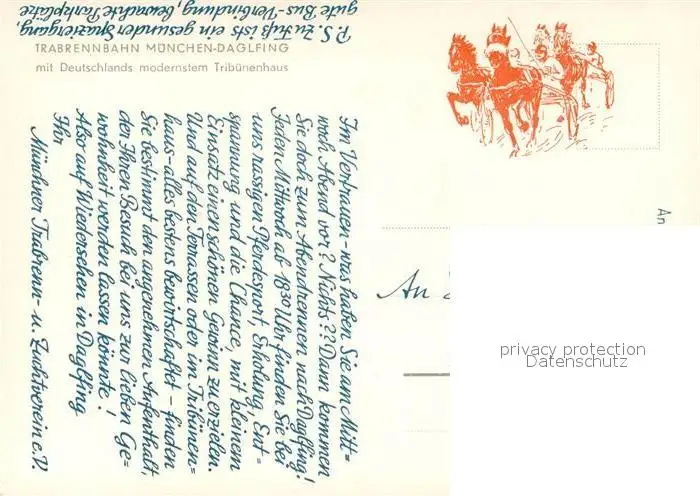 TRABRENNBAHN MÜNCHEN-DAGLFING
mit Deutschlands modernstem Tribünenhaus
Im Vertrauen - was haben Sie am Mitt=
woch Abend vor? Nichts?? Dann kommen
Sie doch zum Abendrennen nach Daglfing!
Jeden Mittwoch ab 18 30 Uhr finden Sie bei
uns rassigen Pferdesport, Erholung, Ent=
spannung und die Chance, mit kleinem
Einsatz einen schönen Gewinn zu erzielen.
Und auf den Terrassen oder im Tribünen=
haus - alles bestens bewirtschaftet - finden
Sie bestimmt den angenehmen Aufenthalt,
der Ihren Besuch bei uns zur lieben Ge=
wohnheit werden lassen könnte!
Also auf Wiedersehen in Daglfing
Ihr
Münchner Trabrenn- u. Zuchtverein e.V.
P.S. Zu Fuß ists ein gesunder Spaziergang,
gute Bus-Verbindung, bewachte Parkplätze
An
An
privacy protection
Datenschutz